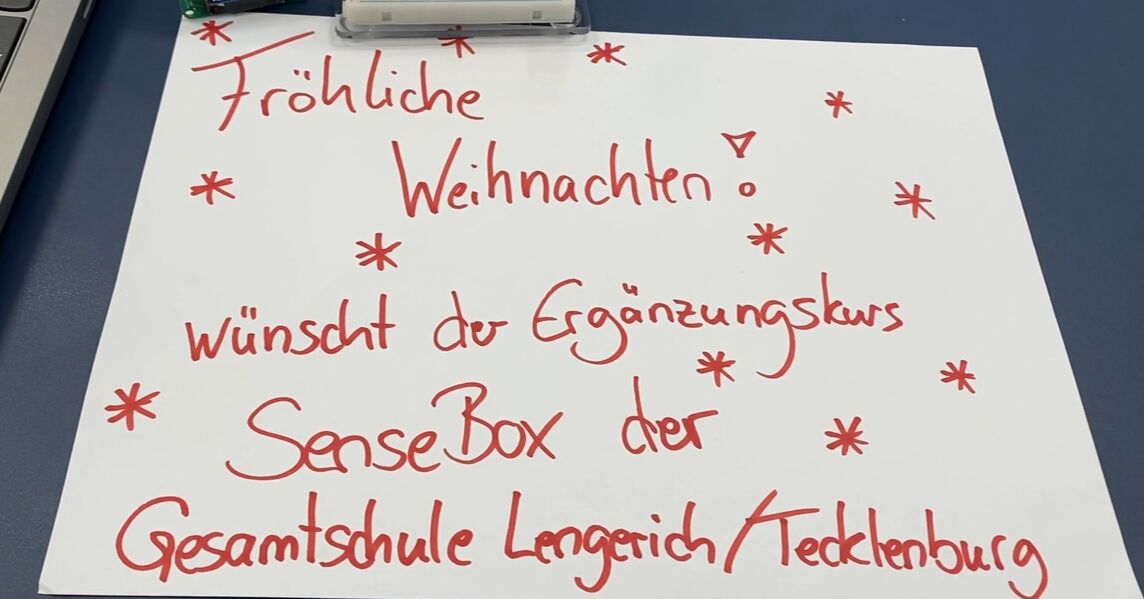 Fröhliche
Weihnachten!
wünscht der Ergänzungskurs
SenseBox der
Gesamtschule Lengerich/Tecklenburg